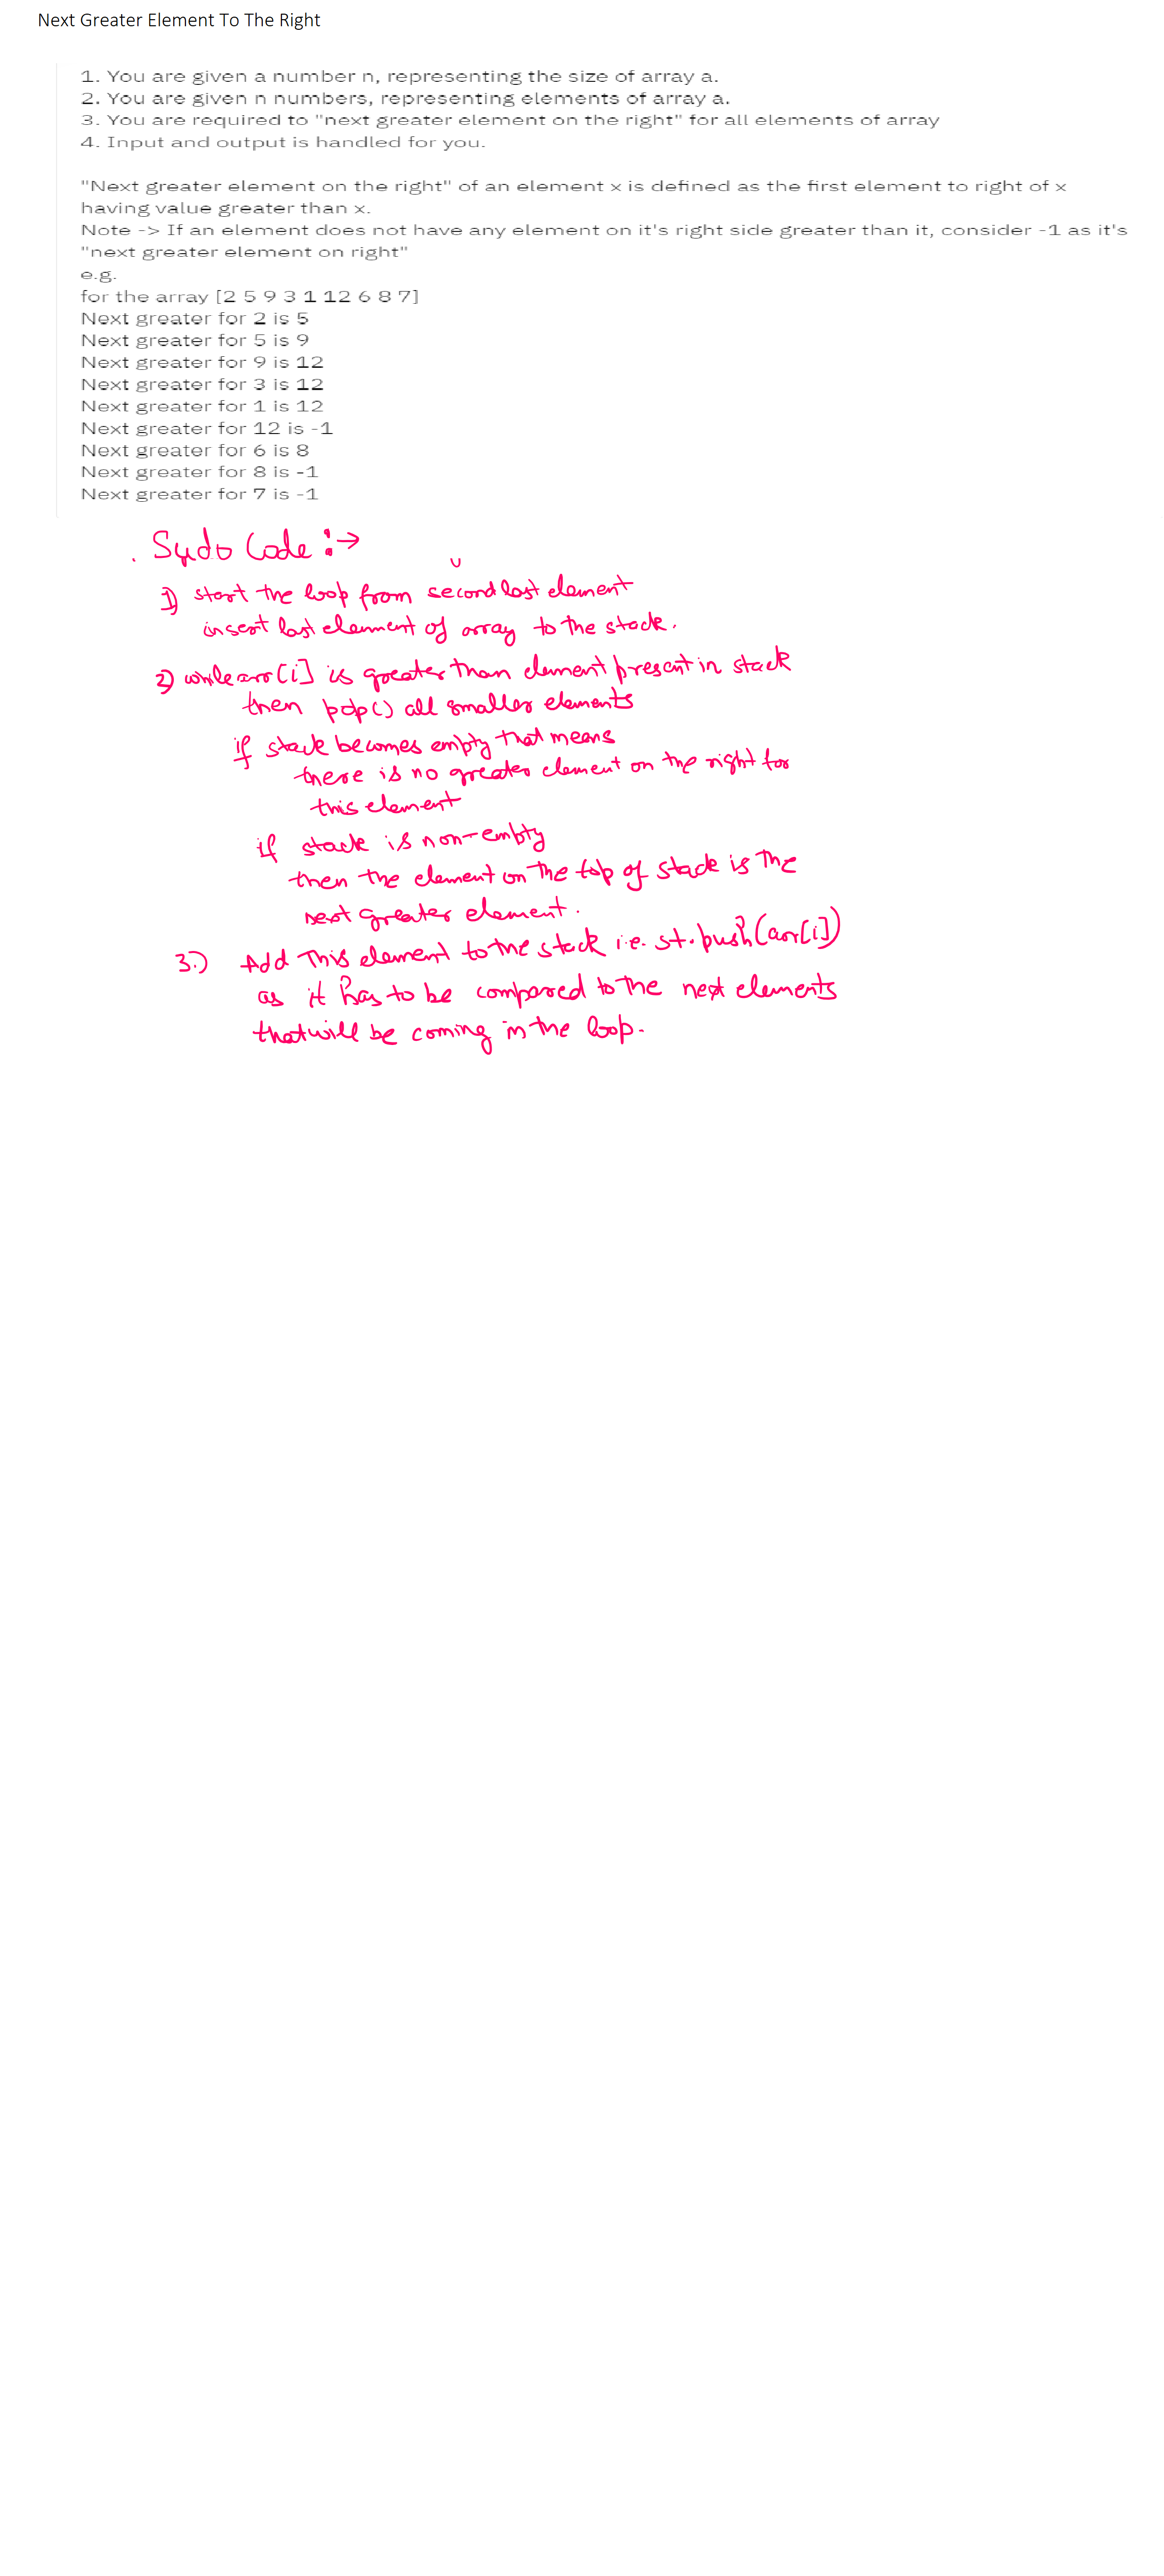 Next Greater Element To The Right
1. You are given a number n, representing the size of array a.
2. You are given n numbers, representing elements of array a.
3. You are required to "next greater element on the right" for all elements of array
4. Input and output is handled for you.
"Next greater element on the right" of an element x is defined as the first element to right of x
having value greater than x.
Note -> If an element does not have any element on it's right side greater than it, consider -1 as it's
"next greater element on right"
e.g.
for the array [2 5 9 3 1 12 6 8 7]
Next greater for 2 is 5
Next greater for 5 is 9
Next greater for 9 is 12
Next greater for 3 is 12
Next greater for 1 is 12
Next greater for 12 is -1
Next greater for 6 is 8
Next greater for 8 is -1
Next greater for 7 is -1
. Sydo Code :→
1) start the loop from second last element
insert last element of array to the stack.
2) while arr[i] is greater than element present in stack
then pop() all smaller elements
if stack becomes empty that means
there is no greater element on the right for
this element
if stack is non-empty
then the element on the top of stack is the
next greater element.
3.) Add This element to the stack i.e. st.push(arr[i])
as it has to be compared to the next elements
that will be coming in the loop.